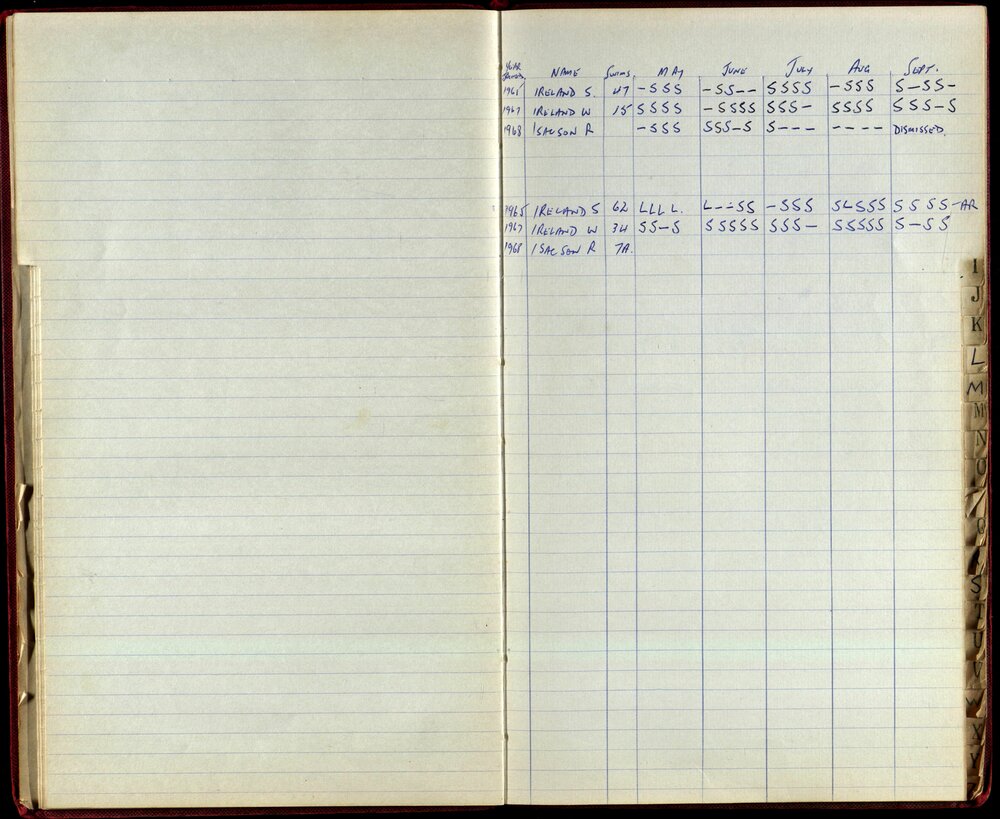 YEAR JOINED NAME SWIMS MAY JUNE JULY AUG SEPT.
1965 IRELAND S. 47 -SSS -SS-- SSSS -SSS S-SS-
1967 IRELAND W 15 SSSS -SSSS SSS- SSSS SSS-S
1968 ISACSON R -SSS SSS-S S--- ---- DISMISSED.
1965 IRELAND S 62 LLLL. L--SS -SSS SLSSS SSSS-AR
1967 IRELAND W 34 SS-S SSSSS SSS- SSSSS S-SS
1968 ISACSON R 7A.
I
J
K
L
M
M
N
O
Q
S
T
U
V
W
X
Y